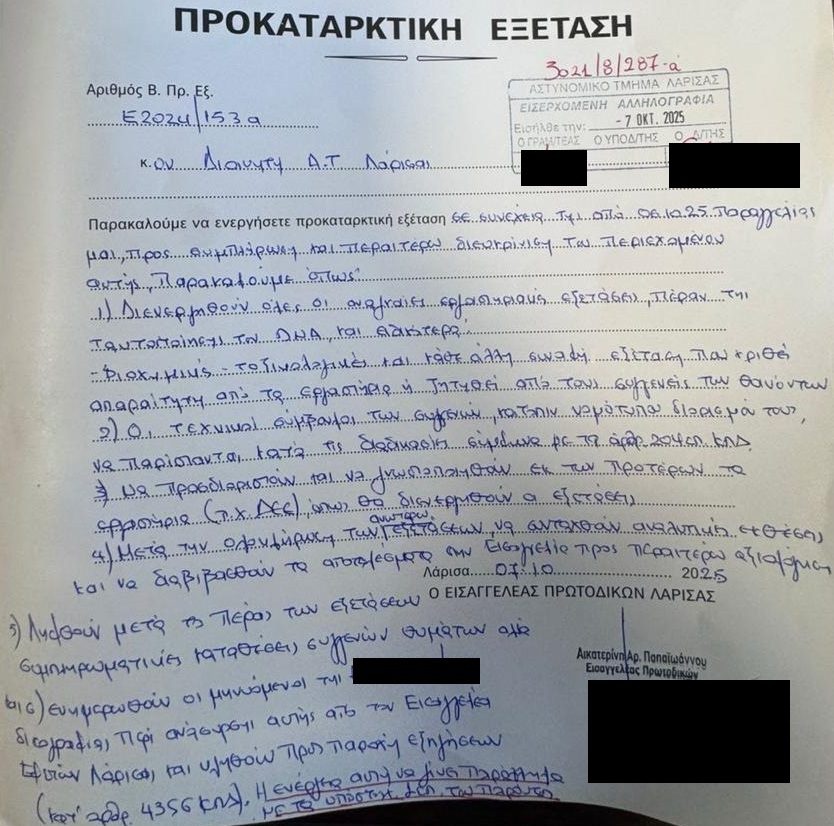 ΠΡΟΚΑΤΑΡΚΤΙΚΗ ΕΞΕΤΑΣΗ
3021/8/287-α
Αριθμός Β. Πρ. Εξ.
Ε2024/153α
ΑΣΤΥΝΟΜΙΚΟ ΤΜΗΜΑ ΛΑΡΙΣΑΣ
ΕΙΣΕΡΧΟΜΕΝΗ ΑΛΛΗΛΟΓΡΑΦΙΑ
Εισήλθε την: -7 ΟΚΤ. 2025
Ο ΓΡΑΜ/ΤΕΑΣ Ο ΥΠΟΔ/ΤΗΣ Ο Δ/ΤΗΣ
κ. ον Διοικητή Α.Τ. Λάρισας
Παρακαλούμε να ενεργήσετε προκαταρκτική εξέταση σε συνέχεια της από 06.10.25 Παραγγελίας
μας, προς συμπλήρωση και περαιτέρω διευκρίνιση του περιεχομένου
αυτής, Παρακαλούμε όπως:
1) Διενεργηθούν όλες οι αναγκαίες εργαστηριακές εξετάσεις, πέραν της
ταυτοποίησης του DNA, και ειδικότερα:
- Βιοχημικές - τοξικολογικές και κάθε άλλη συναφή εξέταση που κριθεί
απαραίτητη από τα εργαστήρια ή ζητηθεί από τους συγγενείς των θανόντων
2) Οι τεχνικοί σύμβουλοι των συγγενών, κατόπιν νομότυπου διορισμού τους,
να παρίστανται κατά τις διαδικασίες σύμφωνα με τα άρθρ. 204 επ ΚΠΔ.
3) Να προσδιοριστούν και να γνωστοποιηθούν εκ των προτέρων τα
εργαστήρια (π.χ. ΔΕΕ), όπου θα διενεργηθούν οι εξετάσεις
4) Μετά την ολοκλήρωση των ανωτέρω εξετάσεων, να συνταχθούν αναλυτικές εκθέσεις
και να διαβιβασθούν τα αποτελέσματα στην Εισαγγελία προς περαιτέρω αξιολόγηση
Λάρισα 07.10 2025
Ο ΕΙΣΑΓΓΕΛΕΑΣ ΠΡΩΤΟΔΙΚΩΝ ΛΑΡΙΣΑΣ
Αικατερίνη Αρ. Παπαϊωάννου
Εισαγγελέας Πρωτοδικών
5) Ληφθούν μετά το πέρας των εξετάσεων
συμπληρωματικές καταθέσεις συγγενών θυμάτων
6) ενημερωθούν οι μηνυόμενοι της
δικογραφίας περί ανάσυρσης αυτής από την Εισαγγελία
Εφετών Λάρισας και κληθούν προς παροχή εξηγήσεων
(κατ' άρθρ. 43§6 ΚΠΔ). Η ενέργεια αυτή να γίνει παράλληλα
με τα υπόλοιπα του παρόντος.